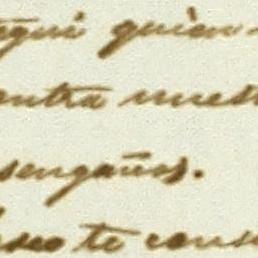 equi quien
entra nuest
sengaños.
seo te cons